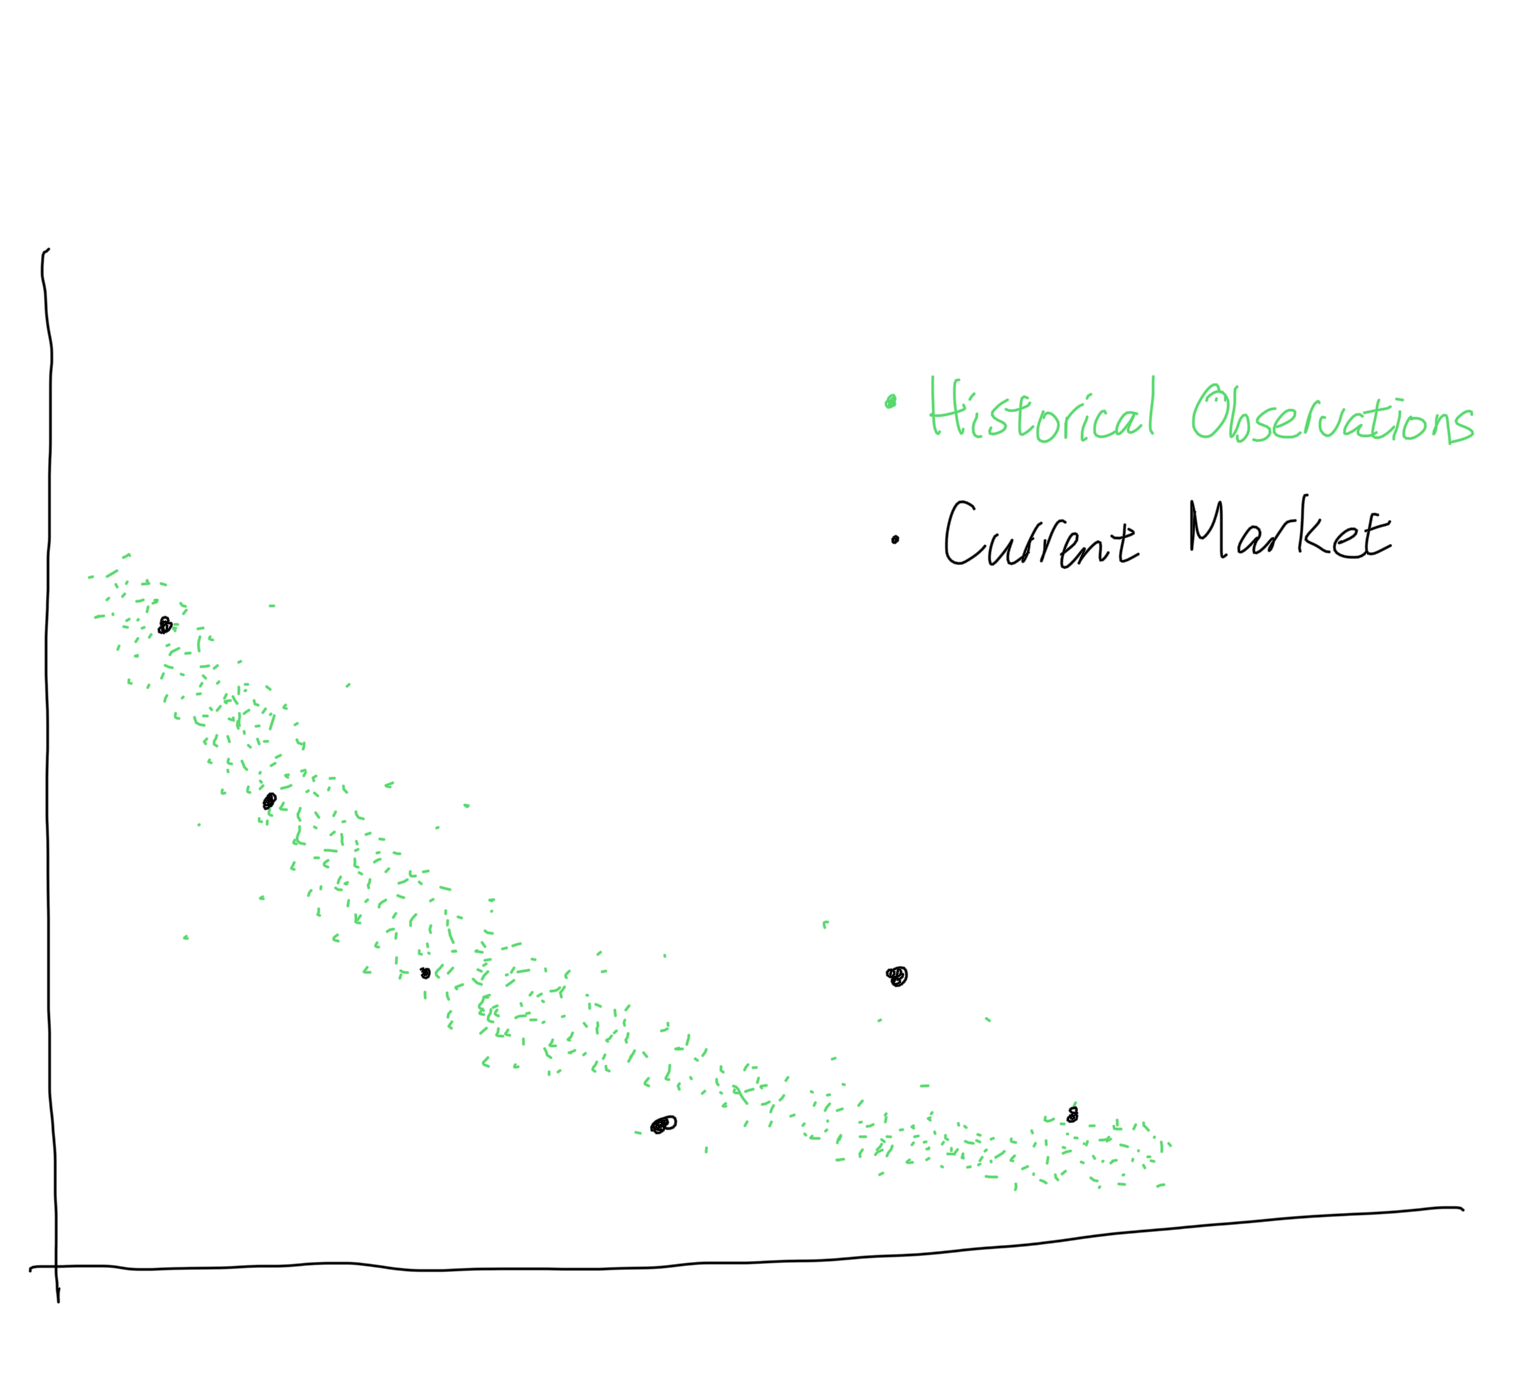 Historical Observations
Current Market